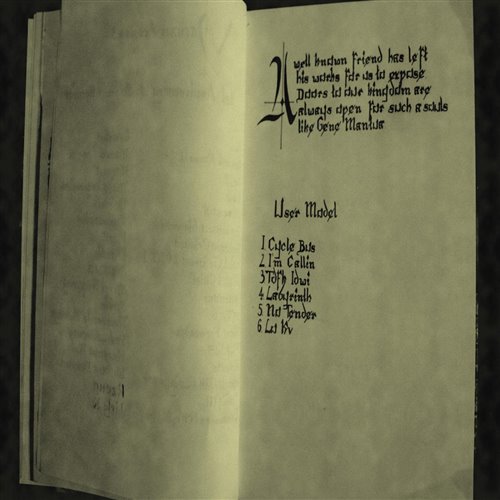 A well known friend has left
his works for us to expose
Doors to our kingdom are
always open for such a souls
like Gene Maniua
User Model
1 Cycle Bus
2 Im Callin
3 Tdfh Idwi
4 Labyrinth
5 No Tender
6 Lo Kv